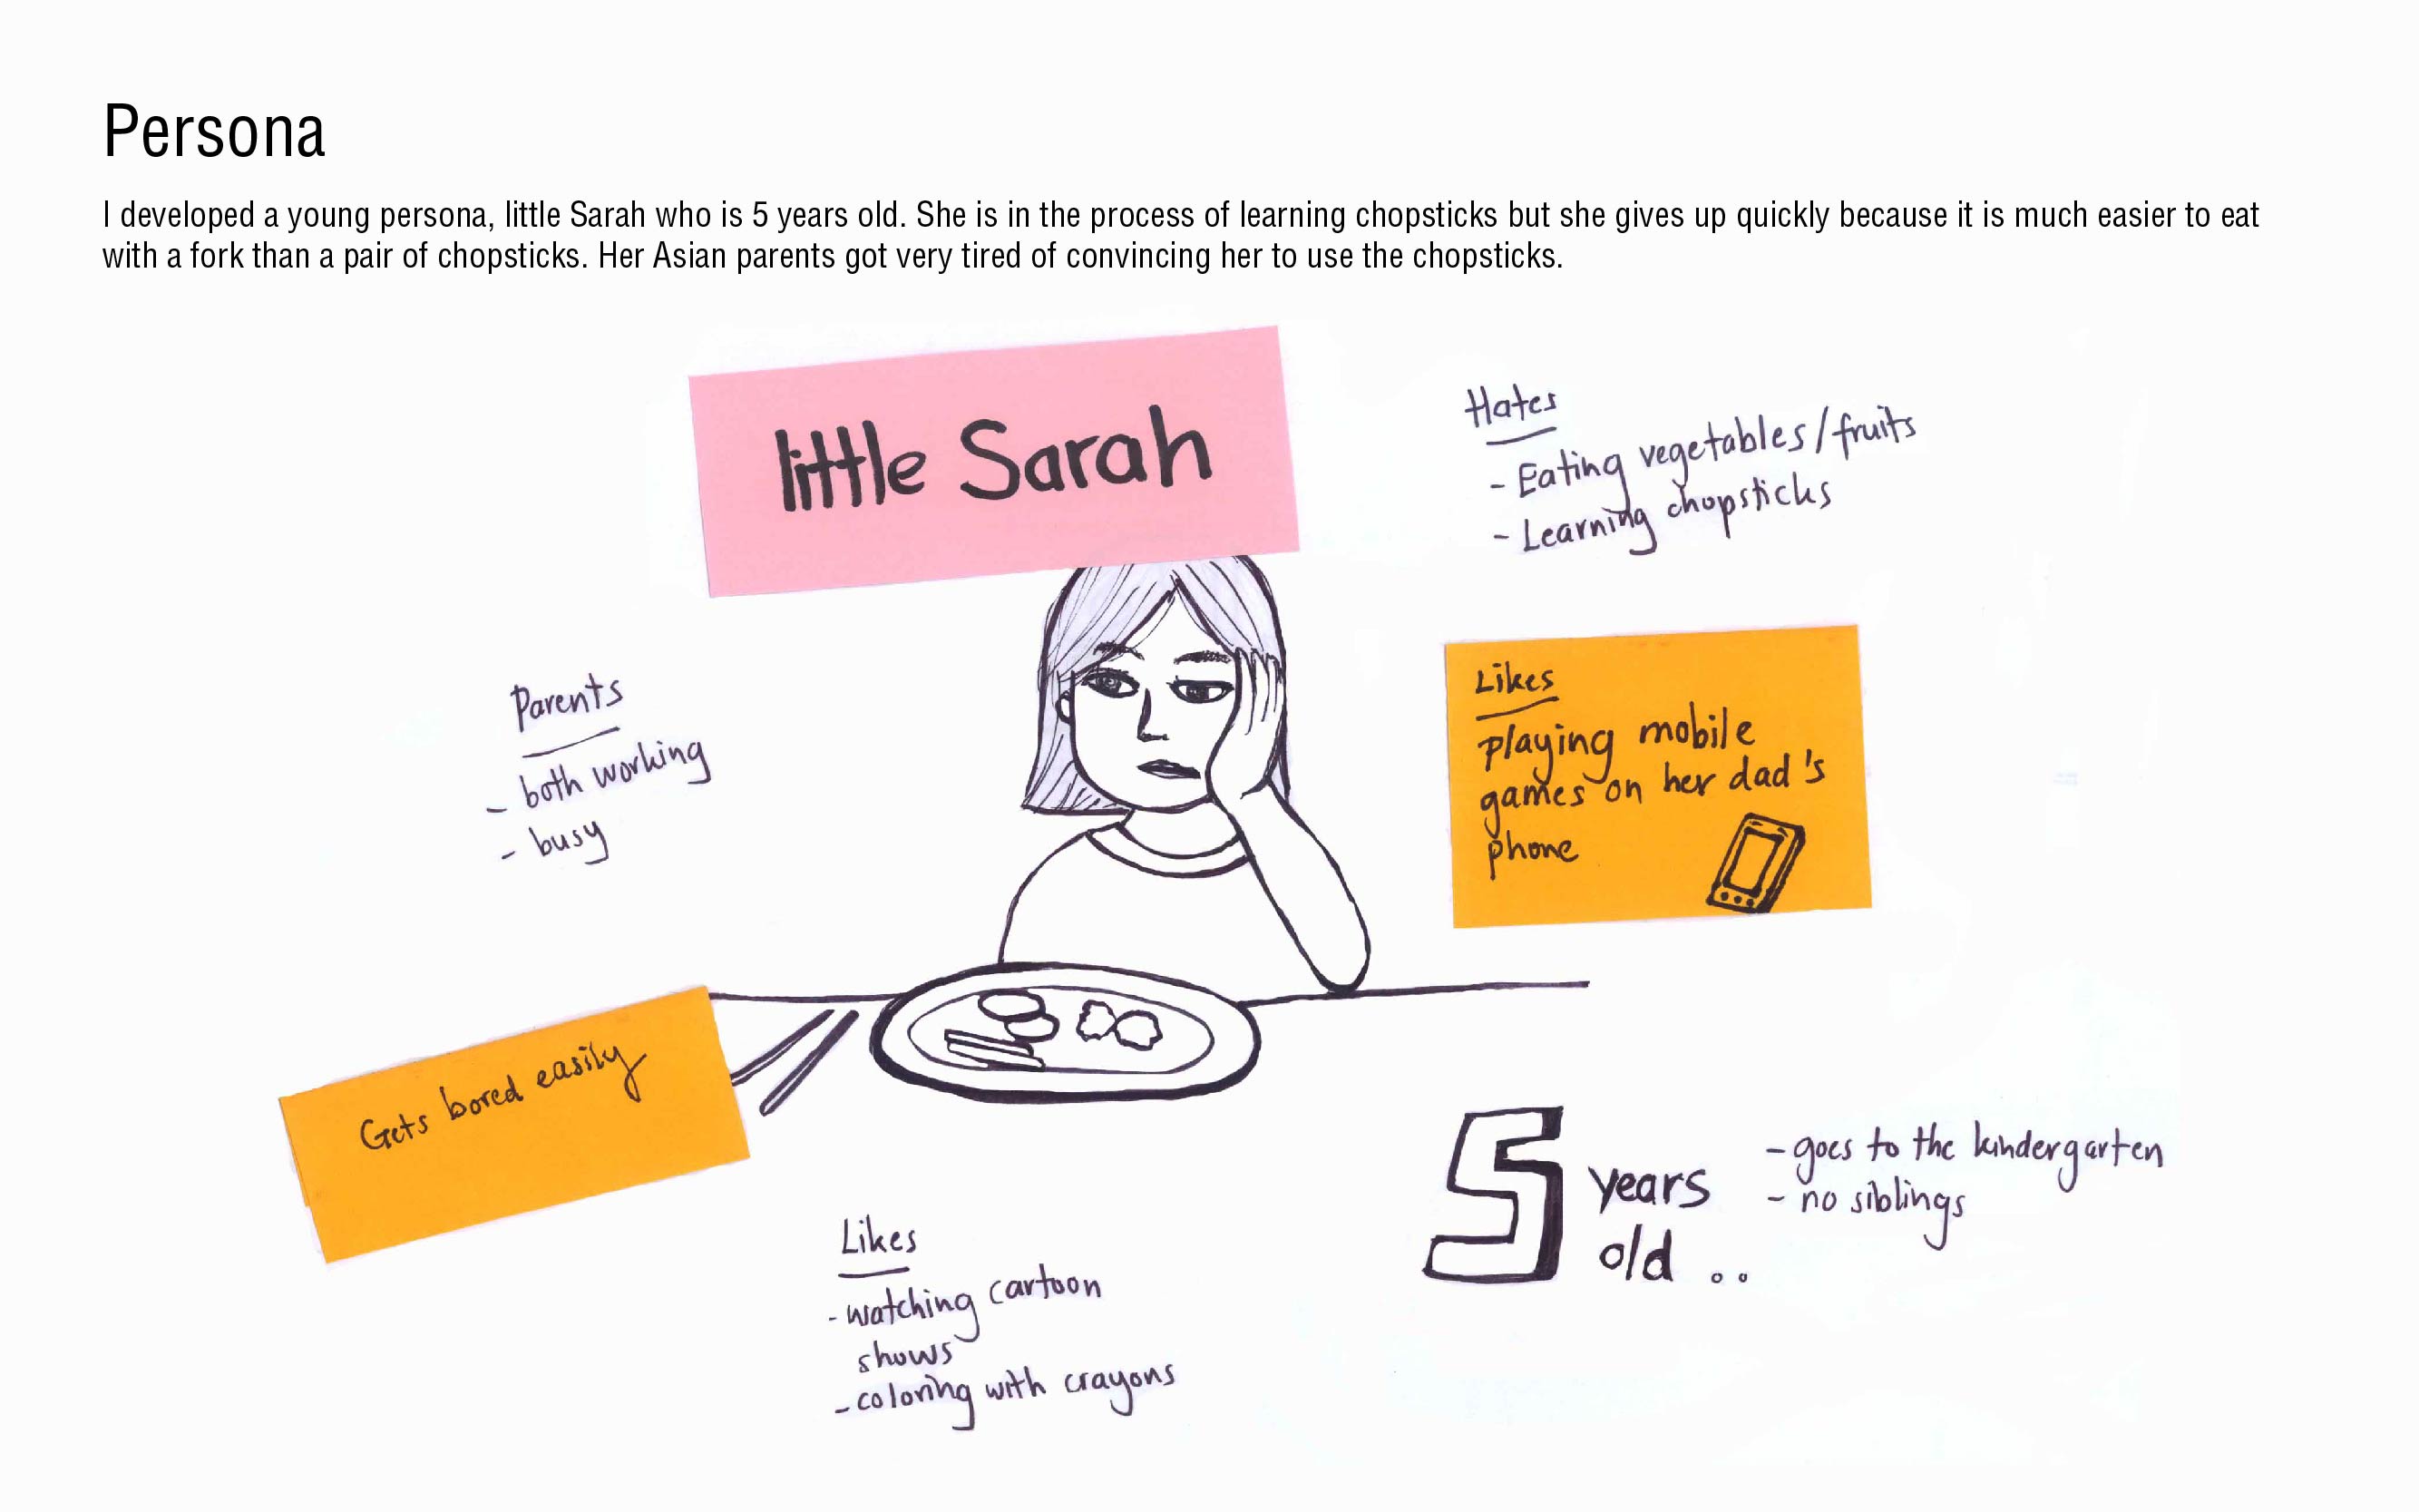 Persona
I developed a young persona, little Sarah who is 5 years old. She is in the process of learning chopsticks but she gives up quickly because it is much easier to eat
with a fork than a pair of chopsticks. Her Asian parents got very tired of convincing her to use the chopsticks.
little Sarah
Hates
- Eating vegetables/fruits
- Learning chopsticks
Parents
- both working
- busy
Likes
playing mobile
games on her dad's
phone
Gets bored easily
5 years
old ..
- goes to the kindergarten
- no siblings
Likes
- watching cartoon
shows
- coloring with crayons